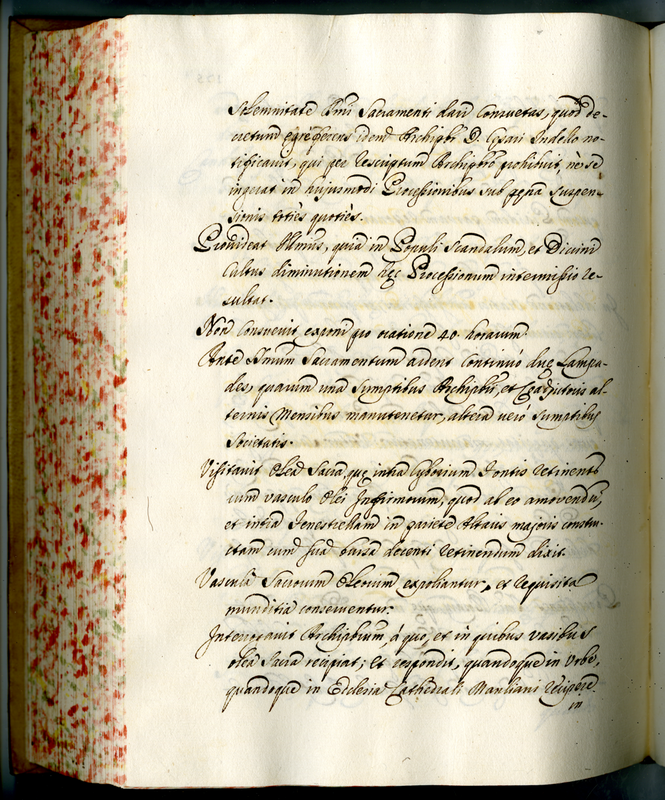 Solemnitate SSmi Sacramenti dari Consuetas, quod de-
cretum egre ferens idem Archipbr D. Cesari Indelo no-
tificavit, qui per rescriptum Archipbro prohibuit, ne se
ingerat in hujusmodi Processionibus sub pena suspen-
sionis toties quoties.
Provideat Illmus, quia in Populi Scandalum, et Divini
Cultus diminutionem hęc Processionum intermissio re-
sultat.
Non Consuevit exponi pro oratione 40. horarum
Ante SSmum Sacramentum ardent Continuo duę Lampa-
des, quarum una Sumptibus Archipbri, et Coadjutoris al-
ternis Mensibus manutenetur, altera vero Sumptibus
Societatis.
Visitavit Olea Sacra, quę intra Cyborium Fontis retinentr
cum vasculo Olei Infirmorum, quod ab eo amovendū,
et intra Fenestrellam in pariete Altaris majoris constru-
ctam cum sua bursa decenti retinendum dixit.
Vascula Sacrorum Oleorum expoliantur, et requisita
munditia conserventur.
Interrogavit Archipbrum, à quo, et in quibus vasibus
olea Sacra recipiat, Et respondit, quandoque in Urbe,
quandoque in Ecclesia Cathedrali Manliani recipere
in